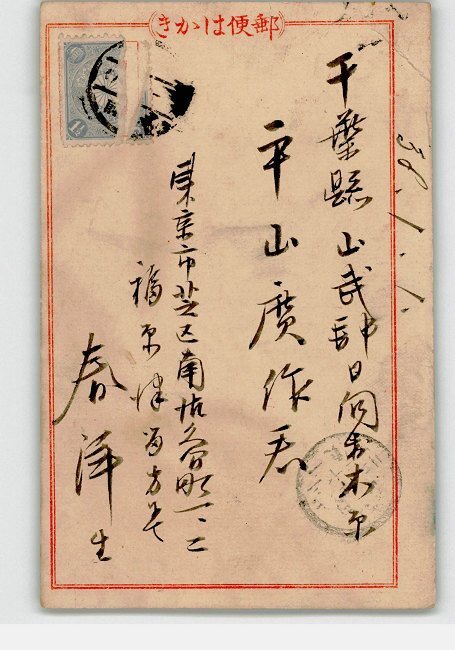 郵便はかき
38.1.1.
千葉縣山武郡日向村木原
平山廣作君
東京市芝区南佐久間町一、二
福原
春洋生
1½